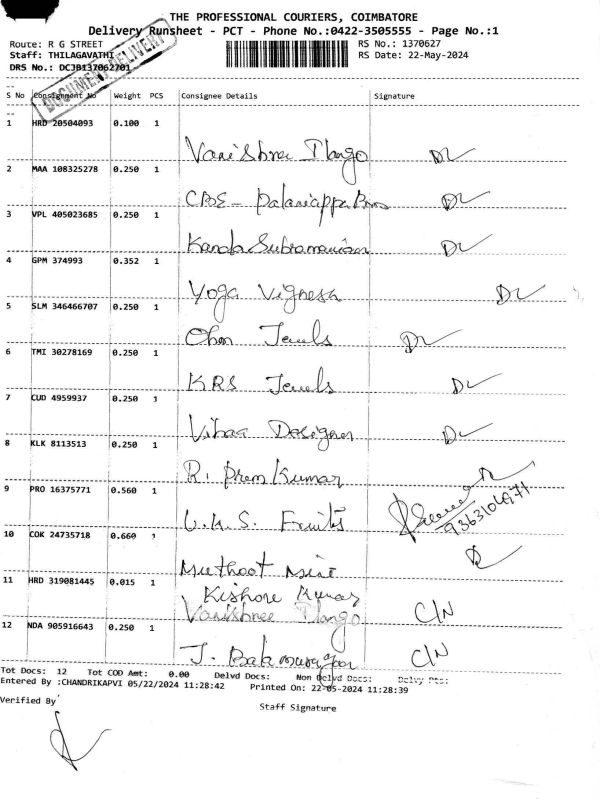 THE PROFESSIONAL COURIERS, COIMBATORE
Delivery Runsheet - PCT - Phone No.:0422-3505555 - Page No.:1
Route: R G STREET RS No.: 1370627
Staff: THILAGAVATHI RS Date: 22-May-2024
DRS No.: DCJB137062701
DOCUMENT DELIVERY
S No Consignment No Weight PCS Consignee Details Signature
1 HRD 20504093 0.100 1
Vanishree Ilango DL
2 MAA 108325278 0.250 1
CBE - Palaniappa Bros DL
3 VPL 405023685 0.250 1
Kanda Subramanian DL
4 GPM 374993 0.352 1
Yoga Vignesh DL
5 SLM 346466707 0.250 1
Ohm Jewels DL
6 TMI 30278169 0.250 1
KRS Jewels DL
7 CUD 4959937 0.250 1
Vihaa Designer DL
8 KLK 8113513 0.250 1
R. Prem Kumar
9 PRO 16375771 0.560 1
Fruits
10 COK 24735718 0.660 1
Muthoot Mini
11 HRD 319081445 0.015 1
Kishore Kumar
Vanishree Ilango C/N
12 NDA 905916643 0.250 1
J. Balamurugan C/N
Tot Docs: 12 Tot COD Amt: 0.00 Delvd Docs: Non Delvd Docs: Delvy Pts:
Entered By :CHANDRIKAPVI 05/22/2024 11:28:42 Printed On: 22-05-2024 11:28:39
Verified By
Staff Signature